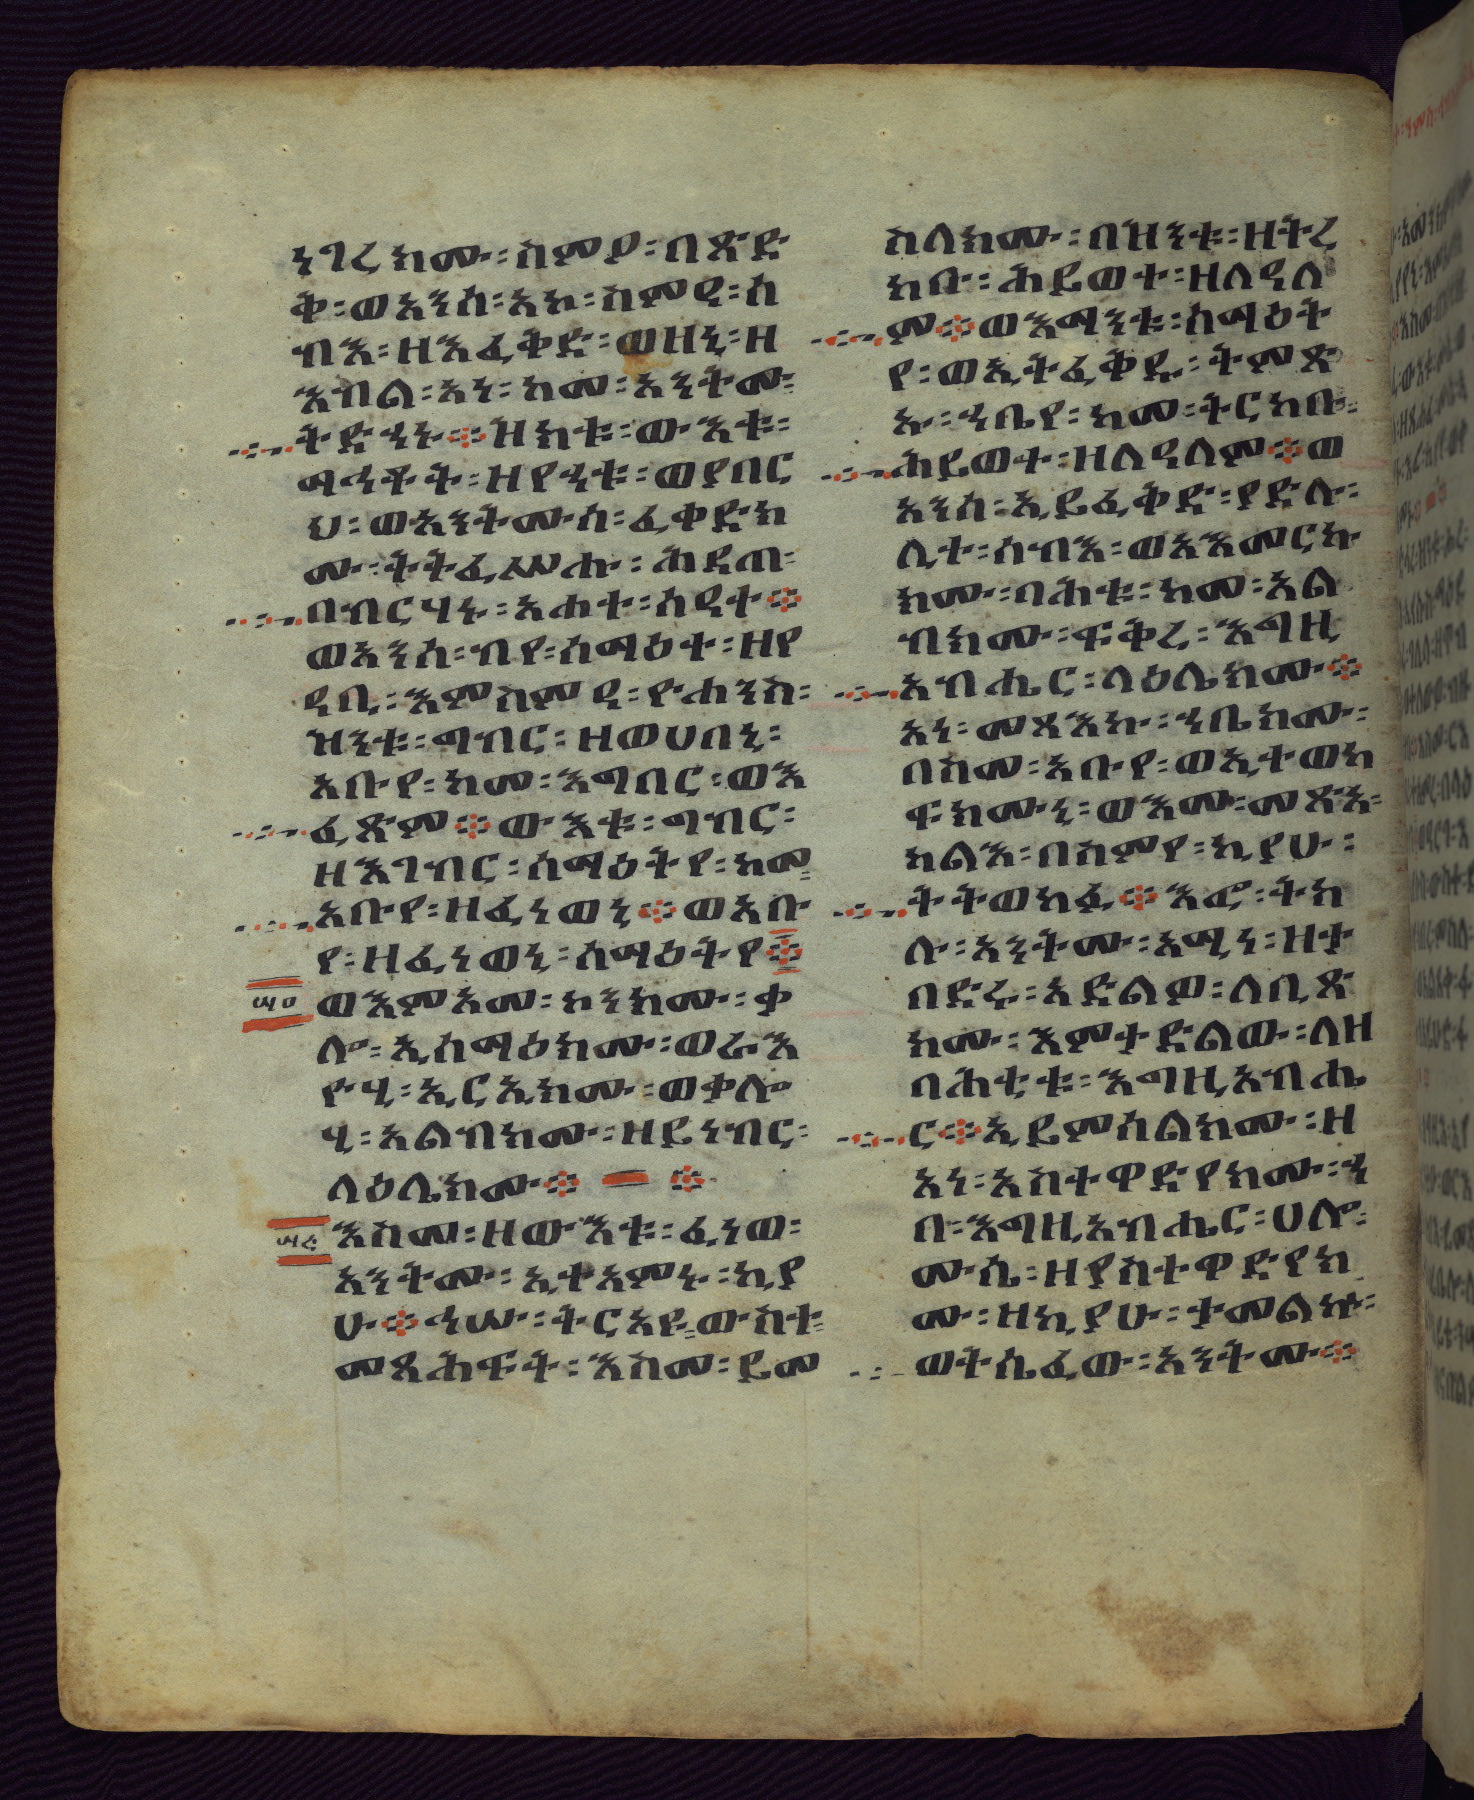 ነገረክሙ፡ስምዐ፡በጽድ
ቅ፡ወአንሰ፡አኮ፡ስምዐ፡ሰ
ብእ፡ዘእፈቅድ፡ወዘኒ፡ዘ
እብል፡አነ፡ከመ፡አንትሙ፡
ትድኅኑ፨ዝክቱ፡ውእቱ፡
ማኅቶት፡ዘየኅቱ፡ወያበር
ህ፡ወአንትሙሰ፡ፈቀድክ
ሙ፡ትትፈሥሑ፡ሕዳጠ፡
በብርሃኑ፡አሐተ፡ሰዓተ፨
ወአንሰ፡ብየ፡ስማዕተ፡ዘየ
ዓቢ፡እምስምዐ፡ዮሐንስ፡
ዝንቱ፡ግብር፡ዘወሀበኒ፡
አቡየ፡ከመ፡እግበር፡ወእ
ፈጽም፨ውእቱ፡ግብር፡
ዘእገብር፡ሰማዕትየ፡ከመ፡
አቡየ፡ዘፈነወኒ፨ወአቡ
የ፡ዘፈነወኒ፡ሰማዕትየ፨
፵፬
ወእምአመ፡ኮንክሙ፡ቃ
ሎ፡ኢሰማዕክሙ፡ወራእ
ዮሂ፡ኢርኢክሙ፡ወቃሎ
ሂ፡አልብክሙ፡ዘይነብር፡
ላዕሌክሙ፨ ፨
እስመ፡ዘውእቱ፡ፈነወ፡
አንትሙ፡ኢተአምኑ፡ኪያ
ሁ፨ኅሡ፡ትርአዩ፡ውስተ፡
መጻሕፍት፡እስመ፡ይመ
ስለክሙ፡በዝንቱ፡ዘትረ
ክቡ፡ሕይወተ፡ዘለዓለ
ም፨ወእማንቱ፡ሰማዕት
የ፡ወኢትፈቅዱ፡ትምጽ
ኡ፡ኀቤየ፡ከመ፡ትርከቡ፡
ሕይወተ፡ዘለዓለም፨ወ
አንሰ፡ኢይፈቅድ፡ያድሉ፡
ሊተ፡ሰብእ፡ወአእመርኩ
ክሙ፡ባሕቱ፡ከመ፡አል
ብክሙ፡ፍቅረ፡እግዚ
አብሔር፡ላዕሌክሙ፨
አነ፡መጻእኩ፡ኀቤክሙ፡
በስመ፡አቡየ፡ወኢተወከ
ፍክሙኒ፡ወእመ፡መጽአ፡
ካልእ፡በስምየ፡ኪያሁ፡
ትትወከፉ፨እፎ፡ትክ
ሉ፡አንትሙ፡አሚነ፡ዘተ
በድሩ፡አድልዎ፡ለቢጽ
ክሙ፡እምተድልው፡ለዘ
ባሕቲቱ፡እግዚአብሔ
ር፨ኢይምሰልክሙ፡ዘ
አነ፡አስተዋድየክሙ፡ኀ
በ፡እግዚአብሔር፡ሀሎ፡
ሙሴ፡ዘያስተዋድየክ
ሙ፡ዘኪያሁ፡ተመልኩ፡
ወትሴፈው፡አንትሙ፨